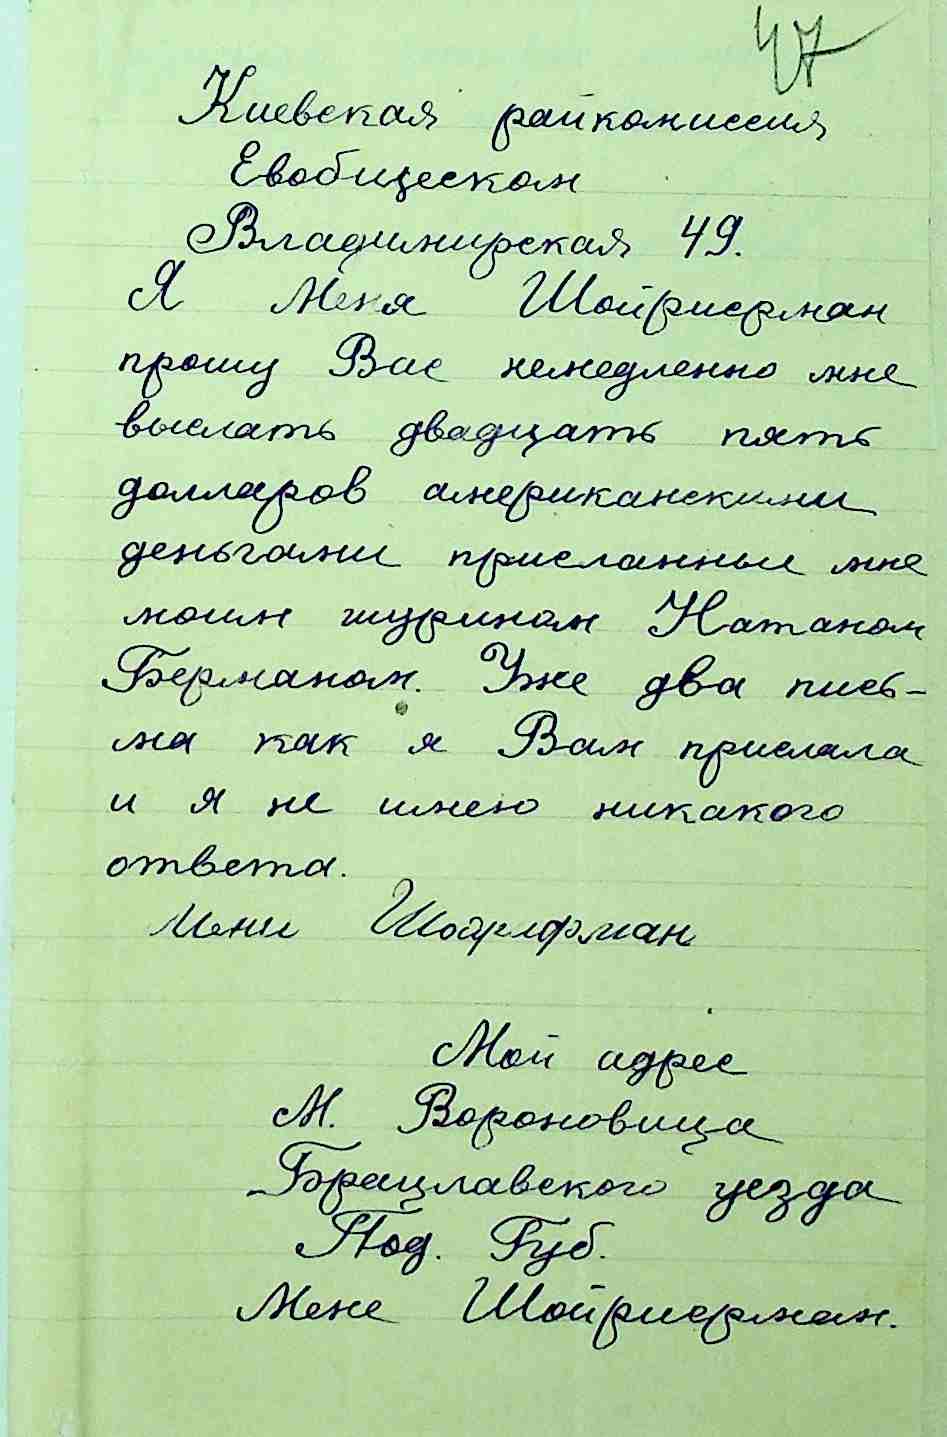 47
Киевская райкомиссия
Евобщеском
Владимирская 49.
Я Меня Шойрифман
прошу Вас немедленно мне
выслать двадцать пять
долларов американскими
деньгами присланные мне
моим шурином Натаном
Берманом. Уже два пись-
ма как я Вам прислала
и я не имею никакого
ответа.
Мени Шойрифман
Мой адрес
М. Вороновица
Брацлавского уезда
Под. Губ.
Мене Шойрифман.